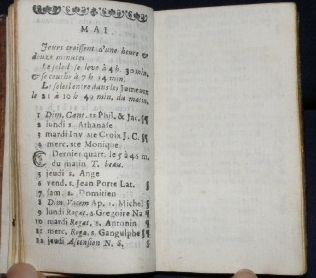 MAI.
Jours croissent d'une heure &
douze minutes
Le soleil se leve à 4 h. 30 min.
& se couche à 7 h 14 min.
Le soleil entre dans les Jumeaux
le 21 à 10 h 49 min. du matin.
1 Dim. Cant. ss Phil. & Jac. ¶
2 lundi s. Athanase
3 mardi Inv ste Croix J. C. ¶
4 merc. ste Monique
Dernier quart. le 5 à 45 m.
du matin T. beau.
5 jeudi s. Ange
6 vend. s. Jean Porte Lat. ¶
7 sam. s. Domitien ¶
8 Dim Vocem Ap. s. Michel ¶
9 lundi Rogat. s. Gregoire Na ¶
10 mardi Rogat. s. Antonin ¶
11 merc. Roga. s. Gangulphe ¶
12 jeudi Ascension N. S. ¶